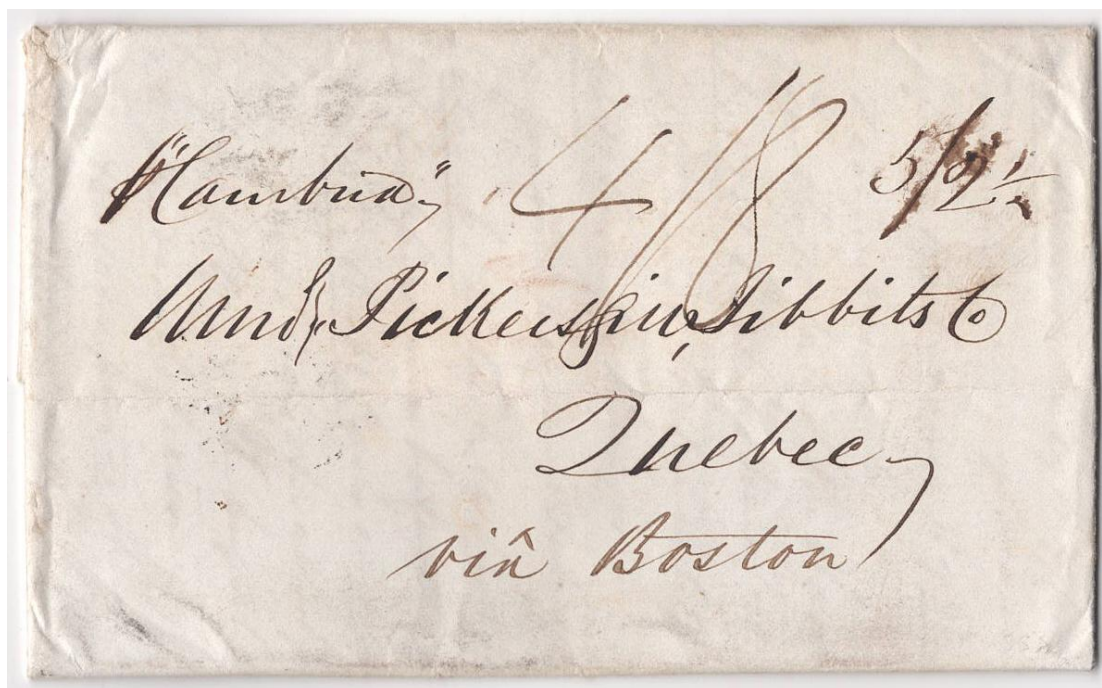 "Cambria" 4/8 5/2½
Pickersgill, Tibbits Co
Quebec
viâ Boston